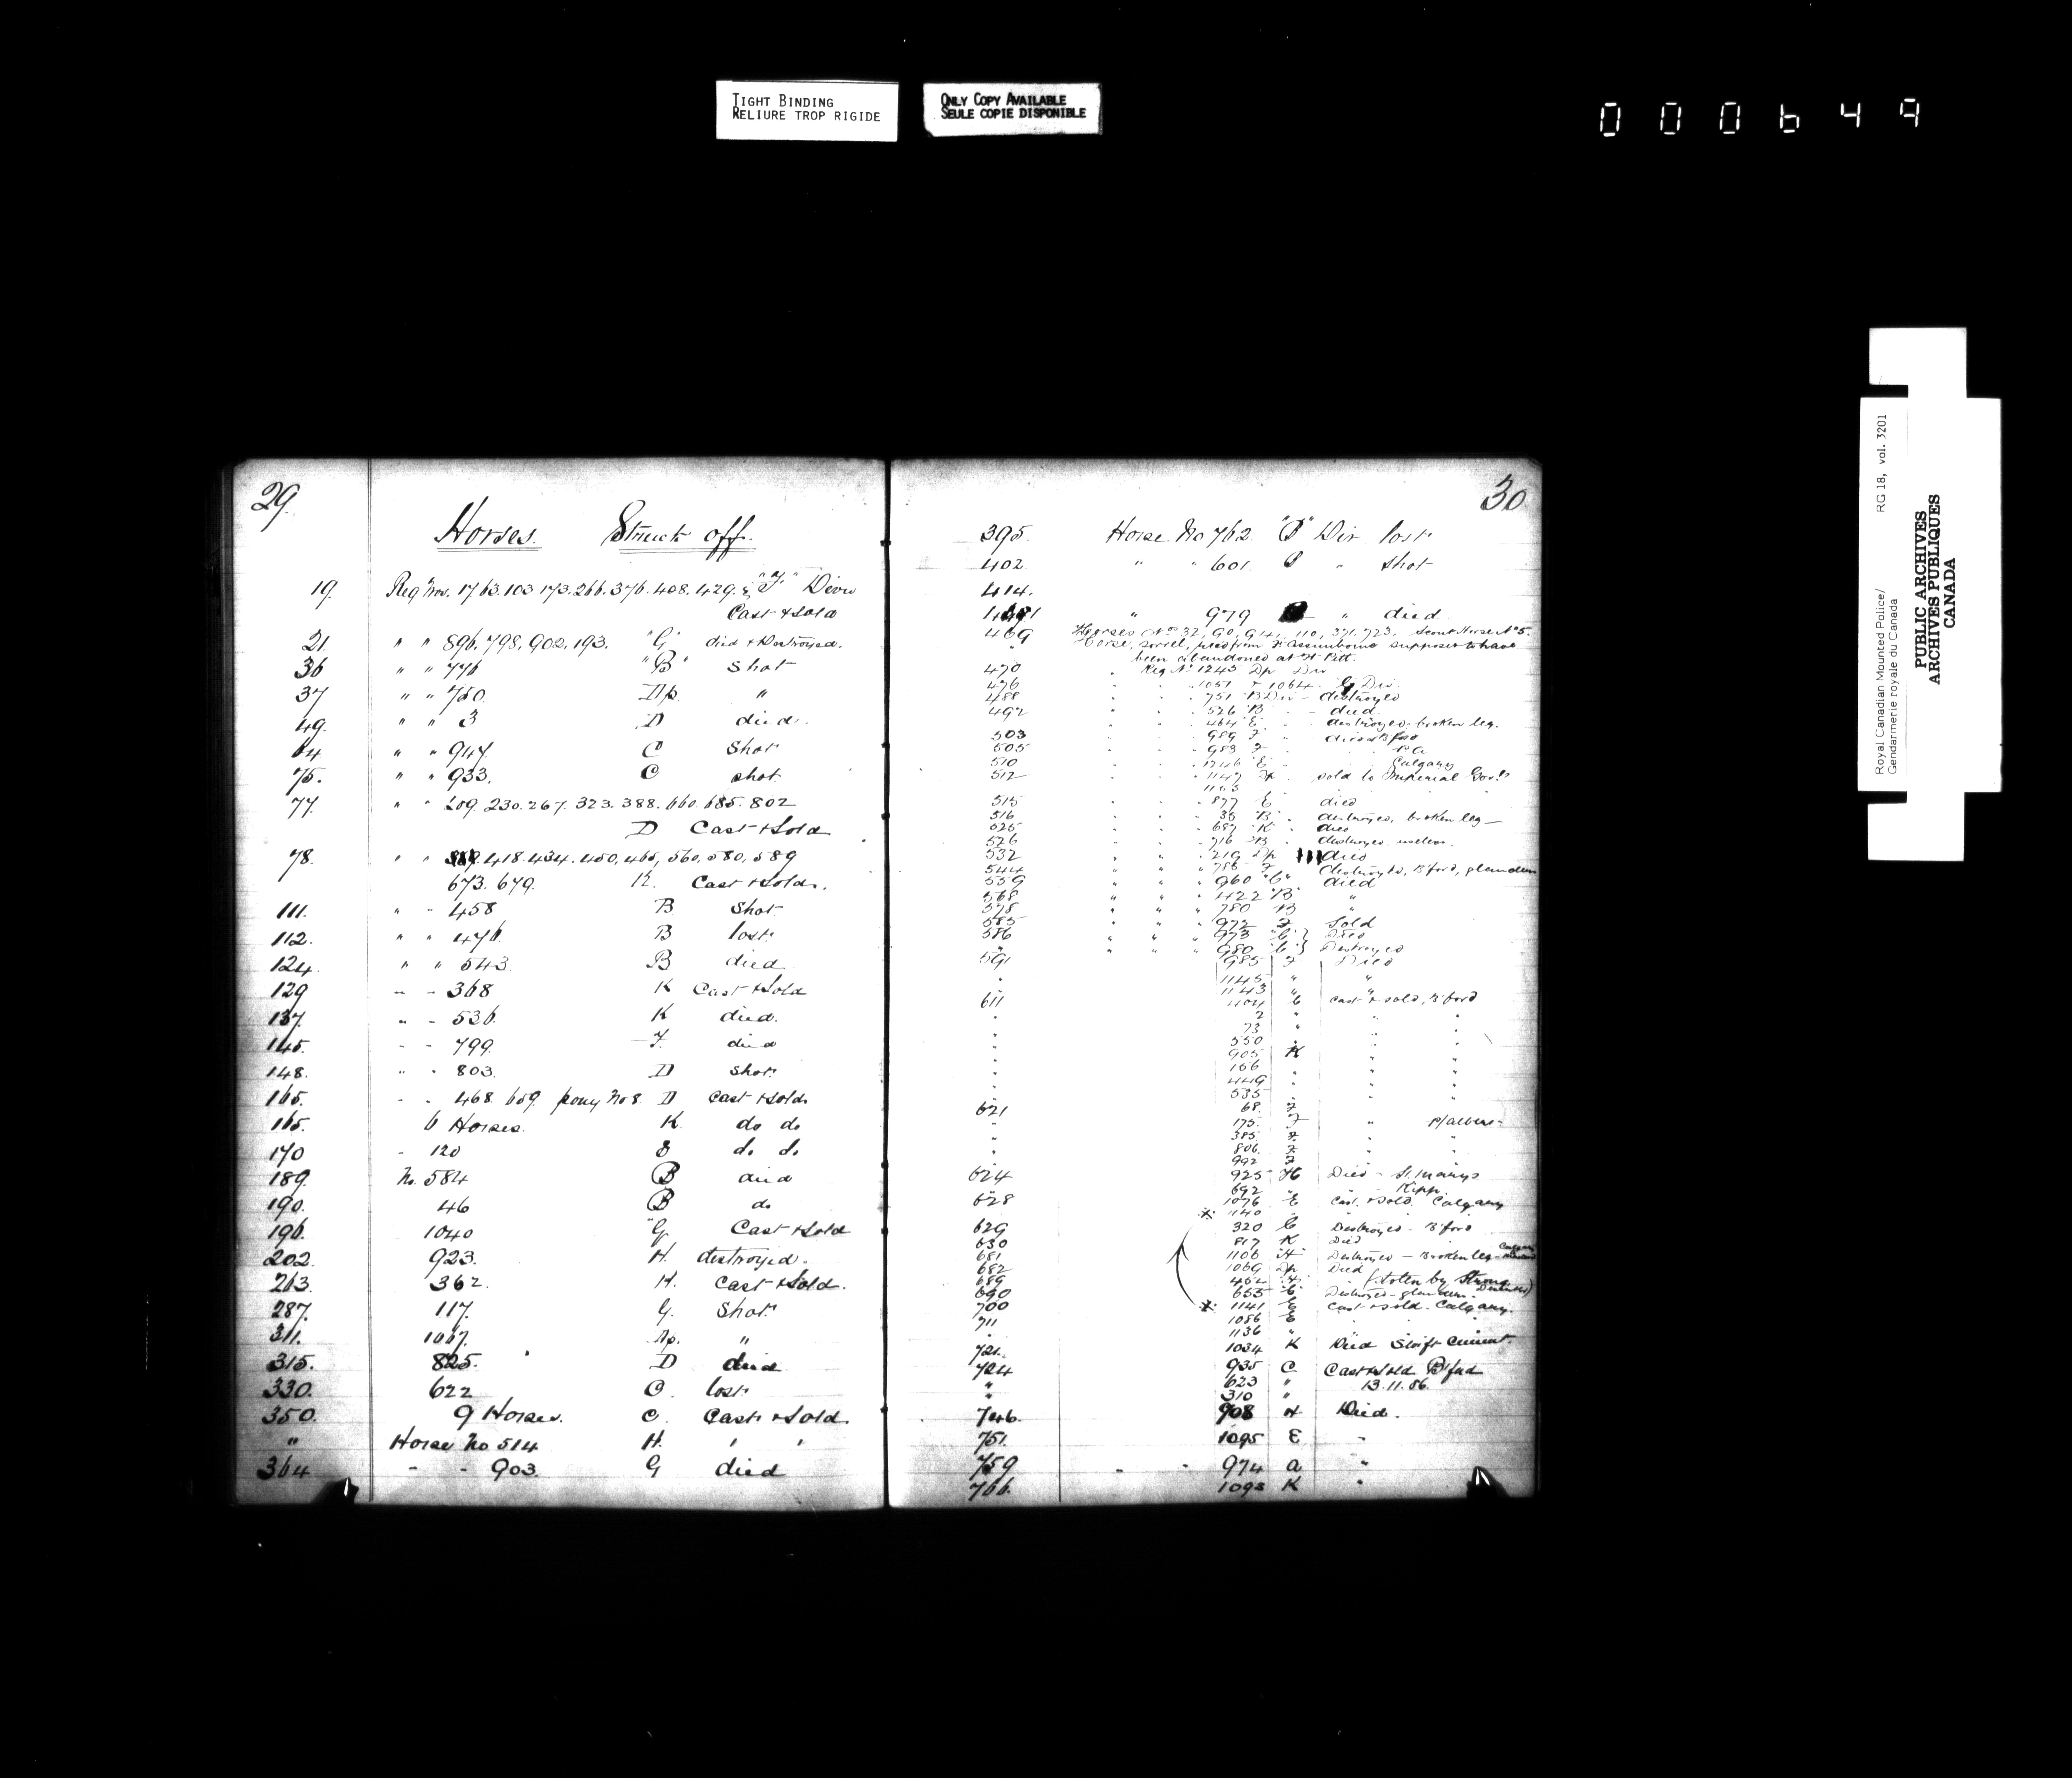 TIGHT BINDING
RELIURE TROP RIGIDE
ONLY COPY AVAILABLE
SEULE COPIE DISPONIBLE
000649
Royal Canadian Mounted Police/ RG 18, vol. 3201
Gendarmerie royale du Canada
PUBLIC ARCHIVES
ARCHIVES PUBLIQUES
CANADA
29.
Horses. Struck off.
19. Reg Nos. 17.63.103.173.266.376.408.429. "F" Divn
Cast & Sold
21. " " 896, 798, 902, 193. "G" died & Destroyed.
36 " " 776 "B" Shot
37 " " 750 Dp. "
49. " " 3 D died.
64 " " 947. C Shot
75. " " 933. C shot
77. " " 209. 230. 267. 323. 388. 660. 685. 802
D Cast & Sold
78. " " 418. 434. 450, 465, 560, 580, 589
673. 679. K. Cast & Sold.
111. " " 458 B Shot
112. " " 476 B lost
124. " " 543 B died
129 " " 368 K Cast & Sold
137. " " 536. K died.
145. " " 799. F. died
148. " " 803. D Shot
165. " " 468. 659. pony No 8. D Cast & Sold
165. 6 Horses. K do do
170 " 120 E do do
189. No. 584 B died
190. 46 B do
196. 1040 "G Cast & Sold
202. 923. H. destroyed.
263. 362. H. Cast & Sold.
287. 117. G. Shot
311. 1067. Dp. "
315. 825. D died
330. 622 C. lost
350. 9 Horses. C. Cast & Sold.
" Horse No 514 H. " "
364 " " 903. G died
30
395. Horse No 762. Div lost
402 " " 601. " shot
414.
" 979 " died
469 Horses Nos 32, 90, 914, 110, 371, 723, Scout Horse No 5.
" Horse, sorrel, pied from Ft Assinniboine supposed to have
been abandoned at Ft Pitt.
470 " Reg No 1245 Dp Div
476 " " " 1051 & 1064. G Div.
488 " " " 751 B Div - destroyed
492 " " " 526 B " died
" " " 464 E " destroyed. broken leg.
503 " " " 989 F " died B'ford
505 " " " 983 F " " P A
510 " " " 1246 E " Calgary
512 " " " 1147 " sold to Imperial Govt
1163 " "
515 " " " 877 E died
516 " " " 35 B " destroyed, broken leg -
525 " " " 687 K " died
526 " " " 716 B " destroyed. useless.
532 " " " 219 Dp died
544 " " " 785 F destroyed, B'ford, glanders
559 " " " 960 "C" died
568 " " " 422 "B" "
578 " " " 780 B "
585 " " " 972 F Sold
586 " " " 973 "C"} Died
" " " " 980 "C"} Destroyed
591 985 F Died
" 1145 " "
1143 " "
611 1104 C cast & sold, B'ford
" 2 " " "
" 73 " " "
" 550 " " "
" 905 K " "
" 166 " " "
" 449 " " "
" 535 " " "
621 68. F
" 175. F " P/Albert
" 385 F " "
" 806. F " "
992 F " "
624 925 H Died - St. Marys
692 " " Kipp.
628 1076 E Cast & Sold. Calgary
* 1140 " " "
629 320 C Destroyed - B'ford
630 817 K Died
681 1106 "H" Destroyed - Broken leg - Calgary
682 1069 Dp Died
689 462 (stolen by Strong
690 653 "C" Destroyed - glanders. Deserter)
700 * 1141 E Cast & sold. Calgary.
711 1086 E " "
" 1136 "
721. 1034 K Died Swift Current.
724 935 C Cast & Sold B'ford
" 623 " 13.11.86.
" 310 "
746. 908 H Died.
751. 1095 E "
759 " " 974 A "
766. 1093 K "